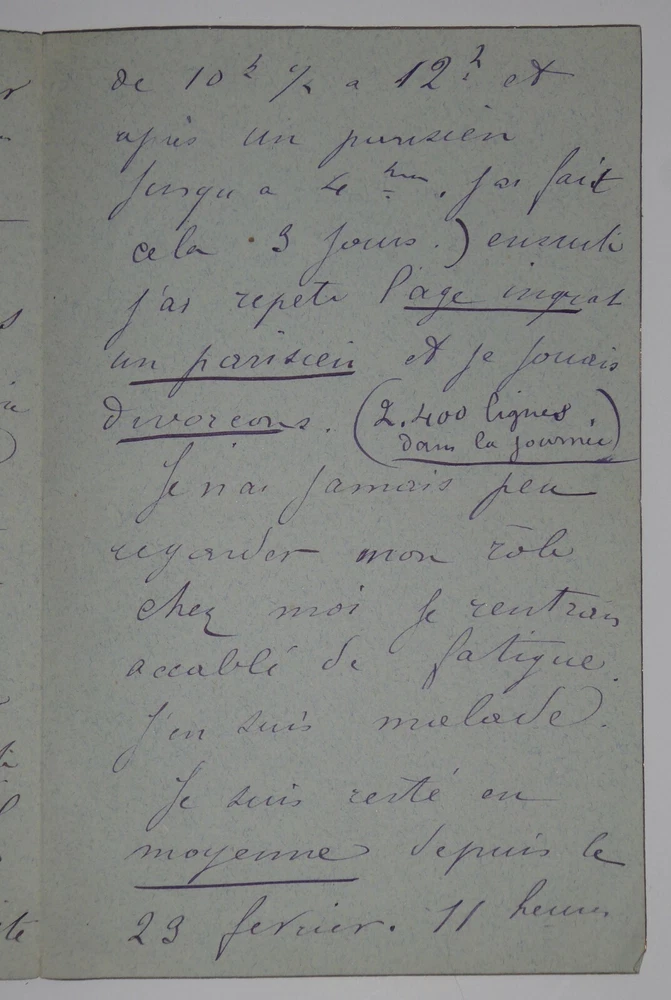 de 10h ½ a 12h et
après un parisien
jusqu a 4 hres. j'ai fait
cela 3 jours.) ensuite
j'ai repete l'age ingrat
un parisien et je jouais
divorcons. (2.400 lignes
dans la journée)
Je n'ai jamais peu
regarder mon rôle
chez moi je rentrais
accablé de fatigue.
J'en suis malade.
Je suis resté en
moyenne depuis le
23 fevrier. 11 heures